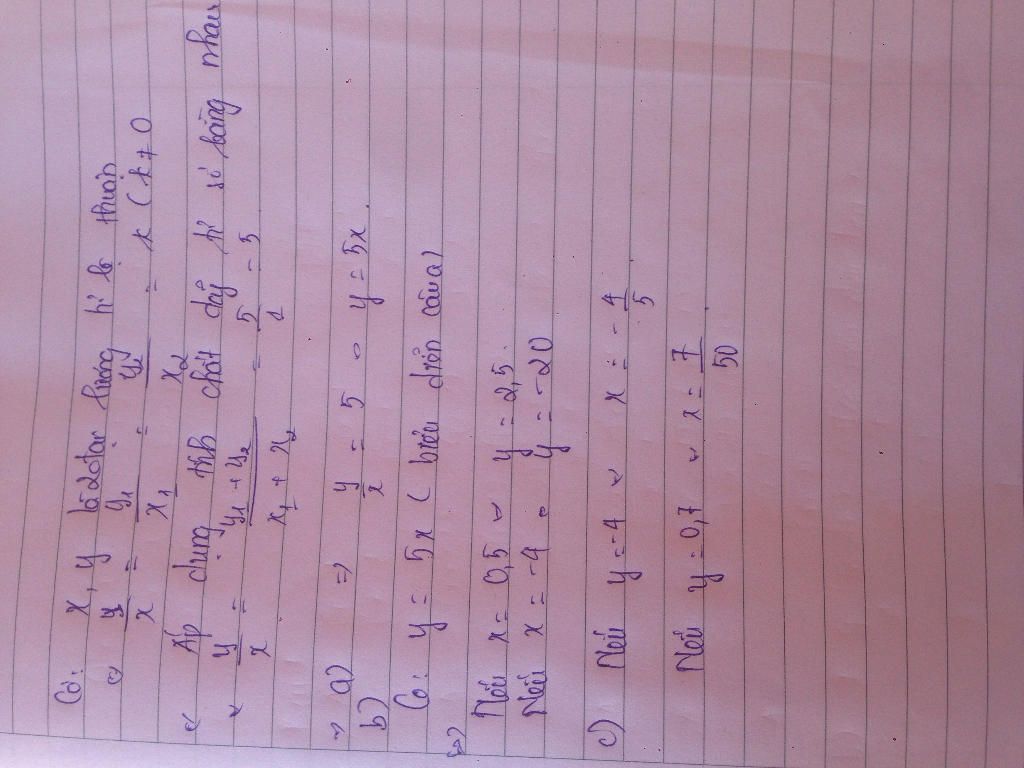 Có: x, y là 2 đại lượng tỉ lệ thuận
⇔ y/x = y₁/x₁ = y₂/x₂ = k (k ≠ 0
Áp dụng tính chất dãy tỉ số bằng nhau
y/x = y₁ + y₂/x₁ + x₂ = 5/1 = 5
⇒ a) ⇒ y/x = 5 ⇔ y = 5x
b)
Có: y = 5x ( biểu diễn câu a)
⇔)
Nếu x = 0,5 ⇔ y = 2,5.
Nếu x = -4 ⇔ y = -20
c) Nếu y = -4 ⇔ x = - 4/5
Nếu y = 0,7 ⇔ x = 7/50.